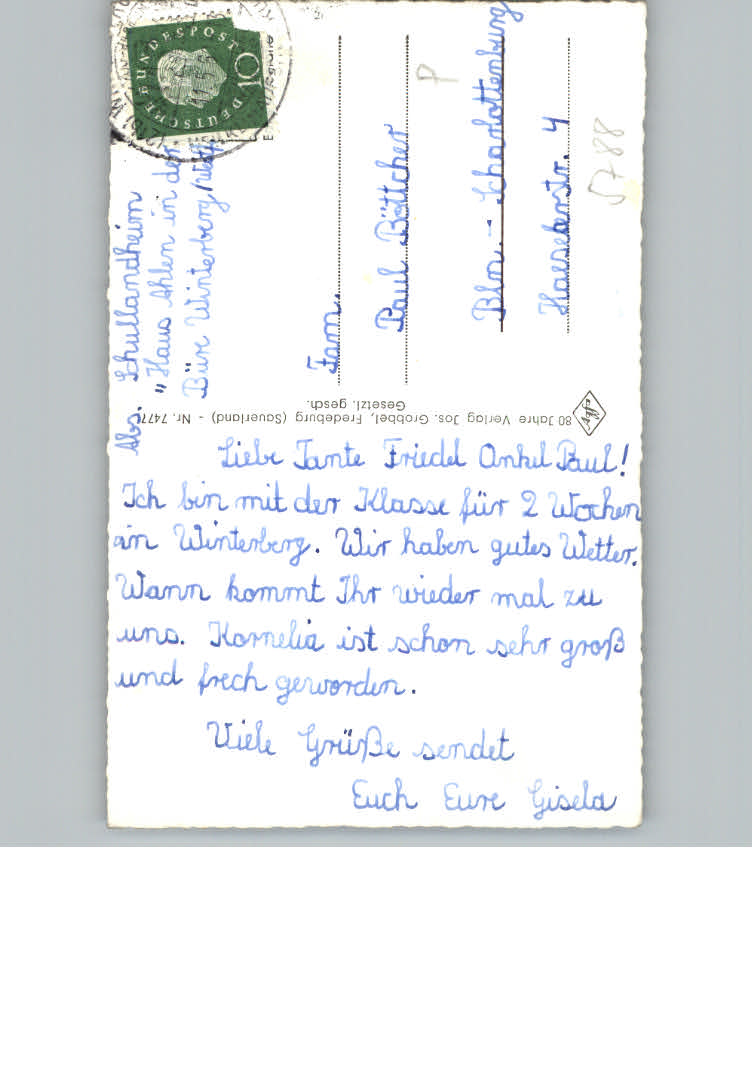 Liebe Tante Friedel Onkel Paul!
Ich bin mit der Klasse für 2 Wochen
in Winterberg. Wir haben gutes Wetter.
Wann kommt Ihr wieder mal zu
uns. Kornelia ist schon sehr groß
und frech geworden.
Viele Grüße sendet
Euch Eure Gisela
Abs. Schullandheim
"Haus Ahlen in der
Büre Winterberg/Westf.
Fam.
Paul Böttcher
Bln. - Charlottenburg
Haeselerstr. 4
P
5788
80 Jahre Verlag Jos. Grobbel, Fredeburg (Sauerland) - Nr. 7477
Gesetzl. gesch.
Agfa
DEUTSCHE BUNDESPOST
10